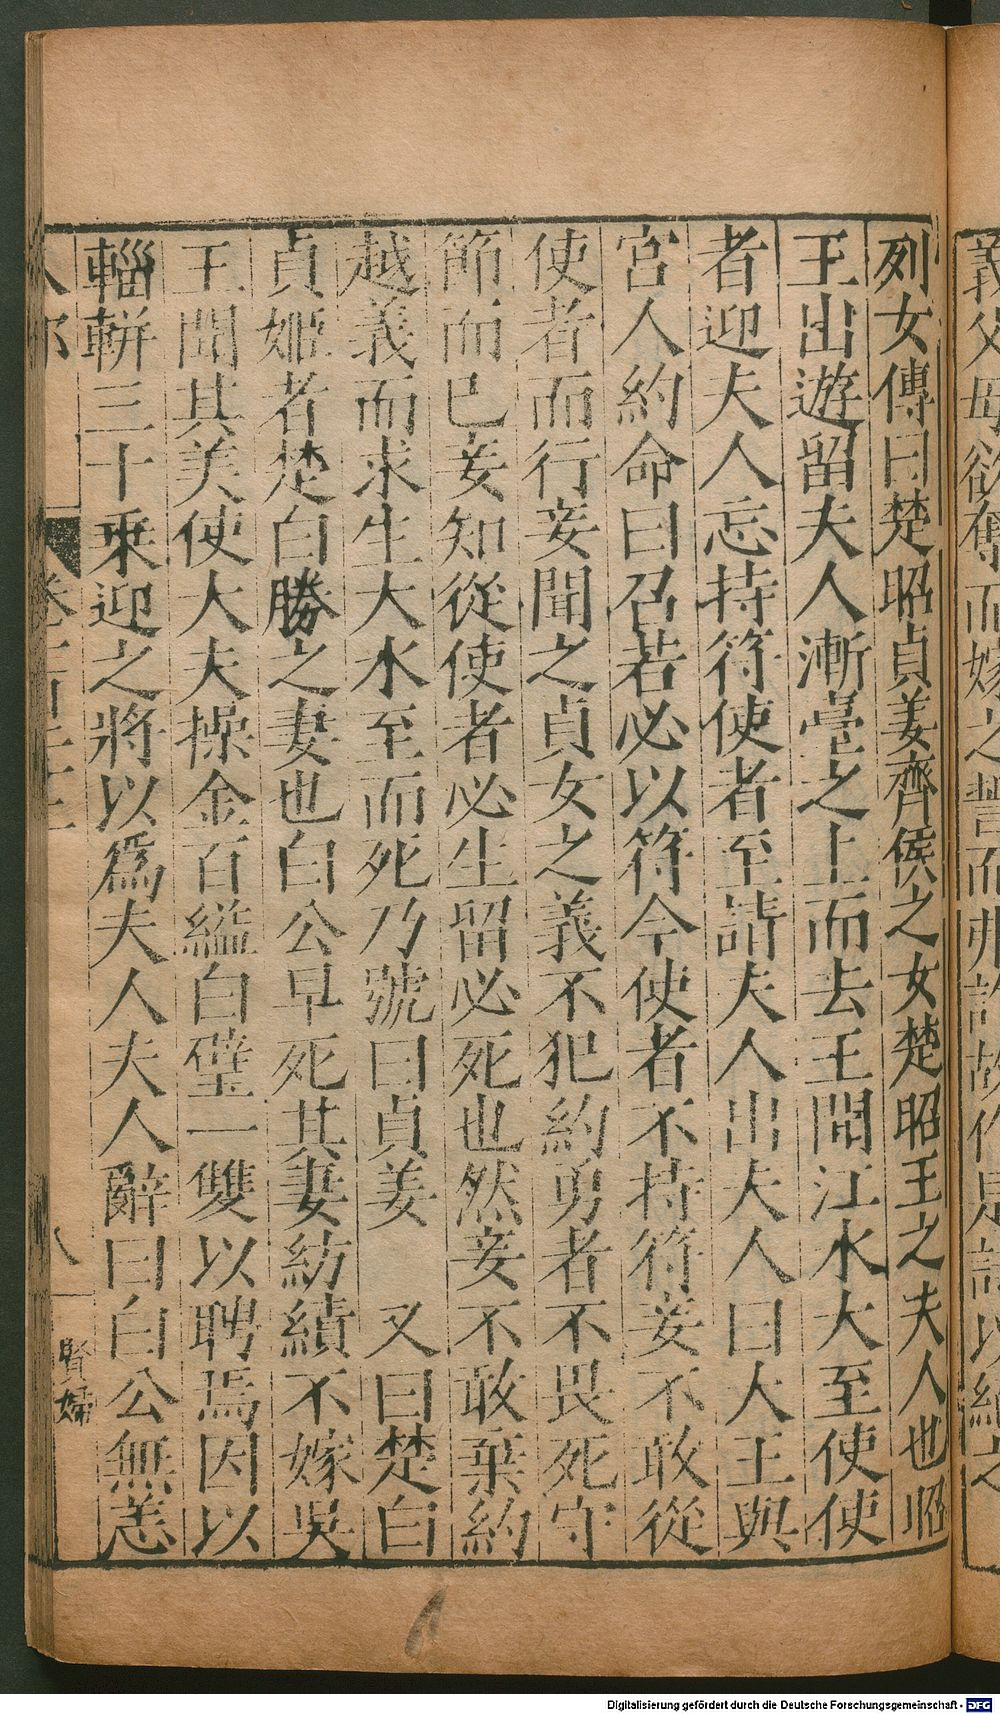 義父母欲奪而嫁之誓而弗許故作是詩以絕之
列女傳曰楚昭貞姜齊侯之女楚昭王之夫人也昭
王出遊留夫人漸臺之上而去王聞江水大至使使
者迎夫人忘持符使者至請夫人出夫人曰大王與
宮人約命曰召若必以符今使者不持符妾不敢從
使者而行妾聞之貞女之義不犯約勇者不畏死守
節而已妾知從使者必生留必死也然妾不敢棄約
越義而求生大水至而死乃號曰貞姜　又曰楚白
貞姬者楚白勝之妻也白公早死其妻紡績不嫁吳
王聞其美使大夫操金百縊白璧一雙以聘焉因以
輜軿三十乘迎之將以爲夫人夫人辭曰白公無恙
人部
八
賢婦
Digitalisierung gefördert durch die Deutsche Forschungsgemeinschaft - DFG